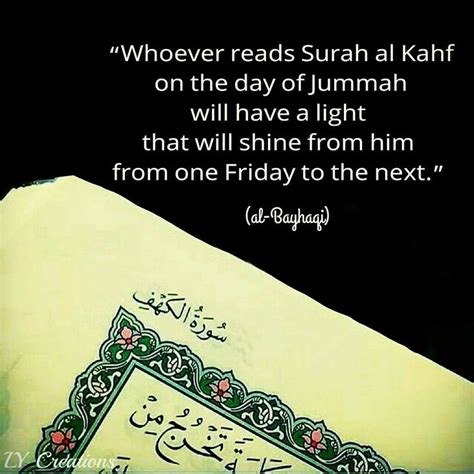 “Whoever reads Surah al Kahf
on the day of Jummah
will have a light
that will shine from him
from one Friday to the next.”
(al-Bayhaqi)
سُورَةُ الكَهْفِ
تَخْرُجُ مِنْ
ZY Creations